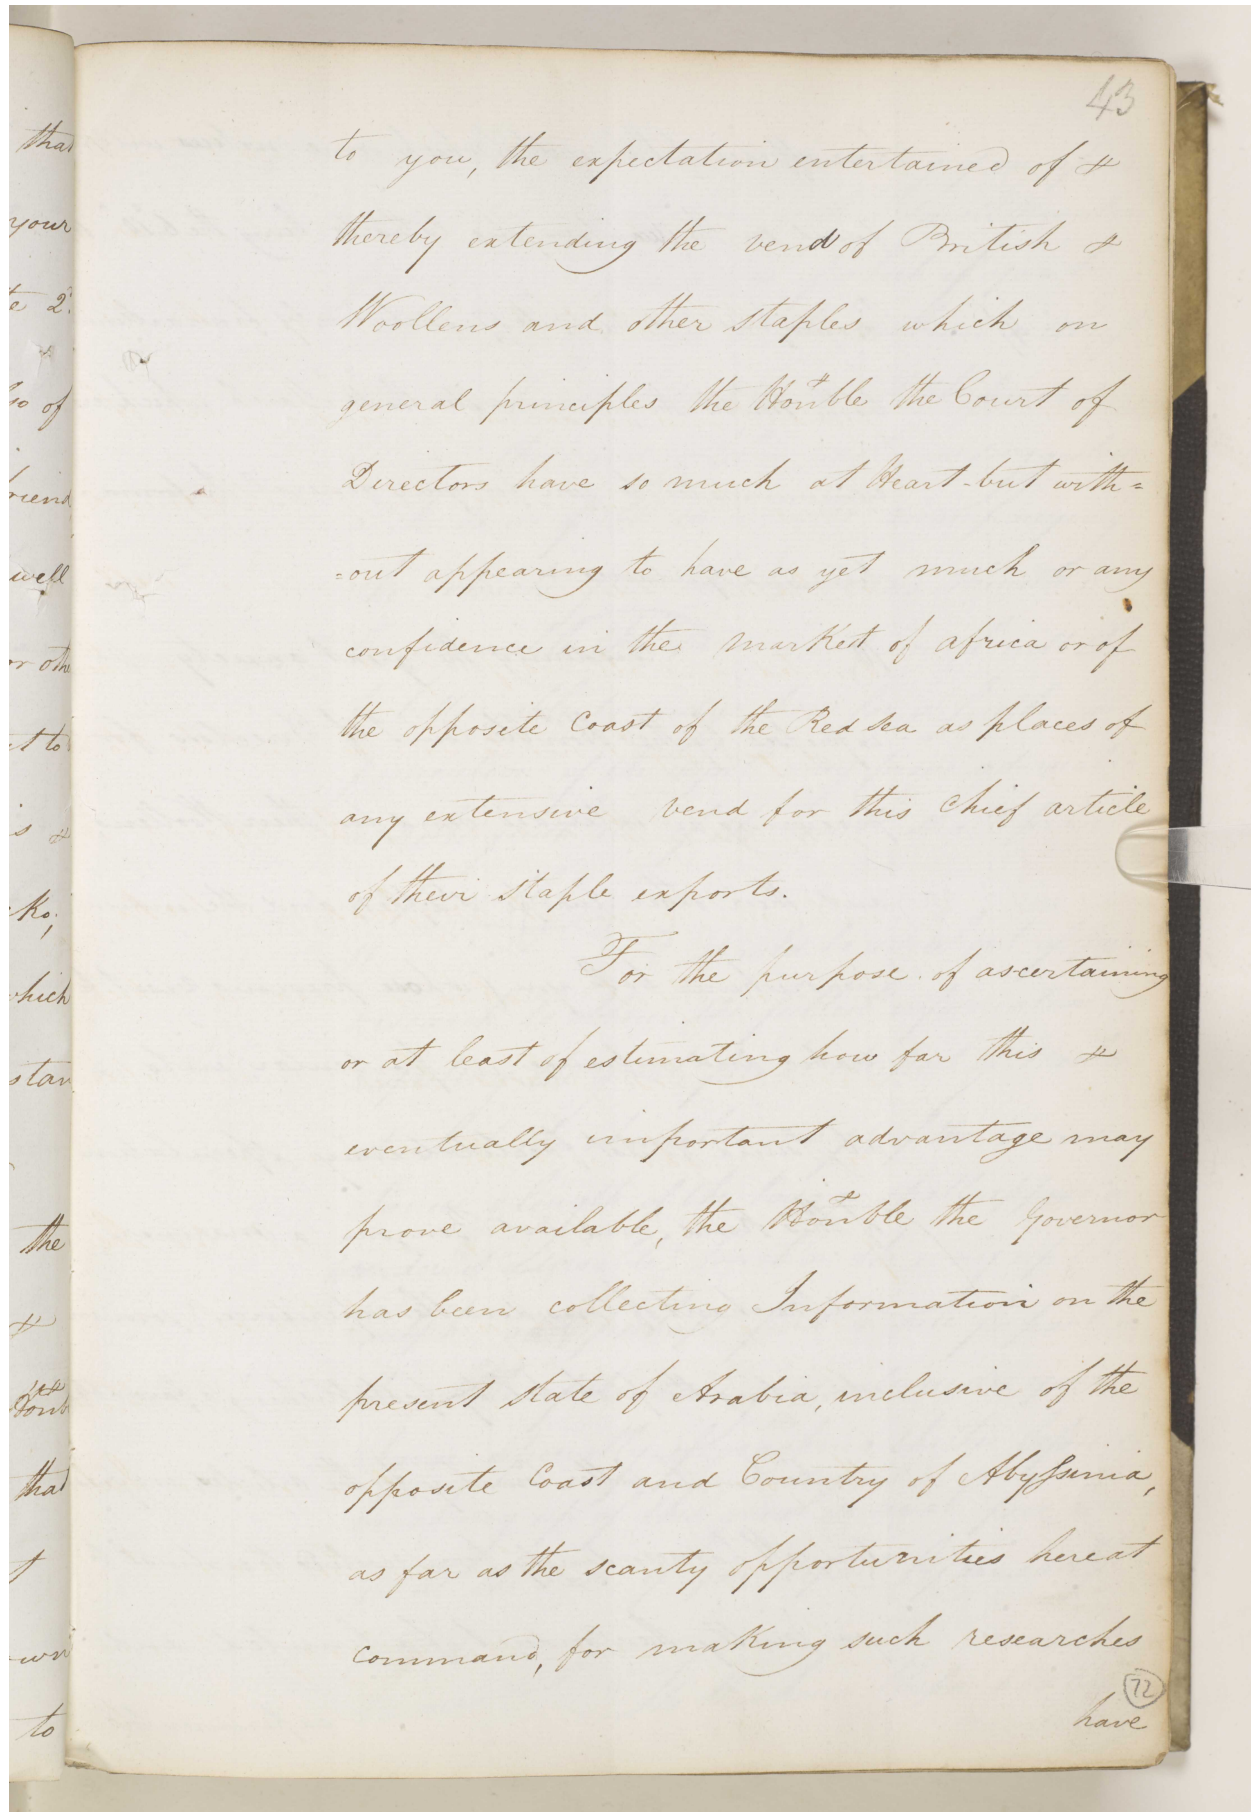 43
to you, the expectation entertained of
thereby extending the vend of British
Woollens and other staples which on
general principles the Honble the Court of
Directors have so much at Heart - but with=
=out appearing to have as yet much or any
confidence in the market of africa or of
the opposite Coast of the Red Sea as places of
any extensive vend for this Chief article
of their Staple exports.
For the purpose of ascertaining
or at least of estimating how far this
eventually important advantage may
prove available, the Honble the Governor
has been collecting Information on the
present state of Arabia, inclusive of the
opposite Coast and Country of Abyssinia,
as far as the scanty opportunities hereat
command, for making such researches
72
have
that
your
2d
so of
riend
well
or oth
t to
Ko;
hich
stan
the
that
to